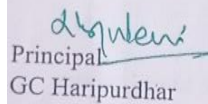 Principal
GC Haripurdhar